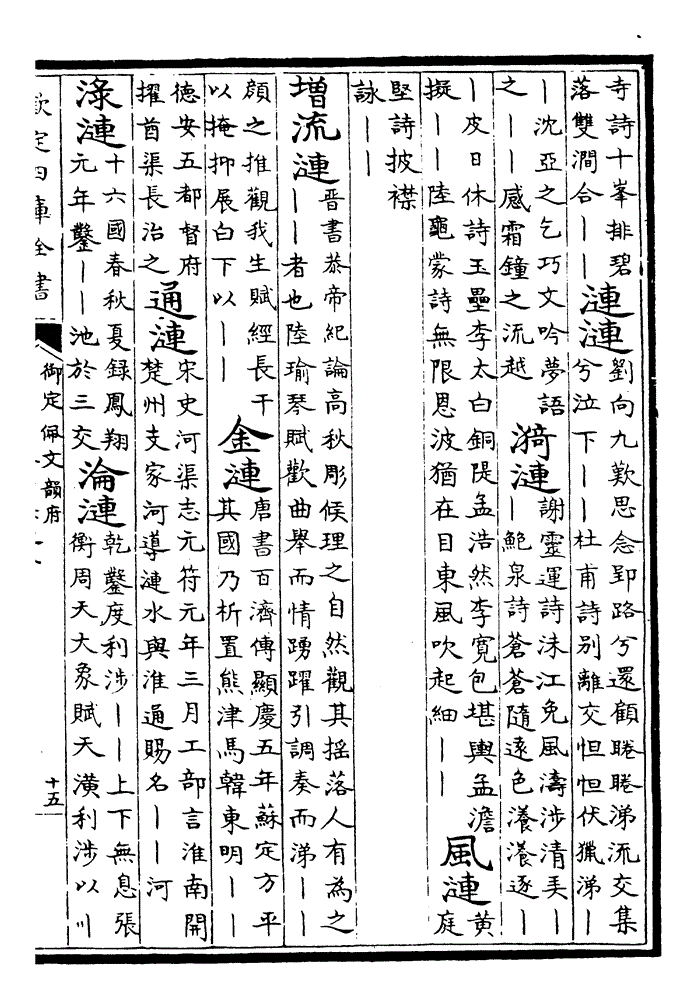 寺詩十峯排碧
落雙澗合——
漣漣
劉向九歎思念郢路兮還顧睠睠涕流交集
兮泣下——杜甫詩別離交怛怛伏獵涕—
—沈亞之乞巧文吟夢語
之——感霜鐘之流越
漪漣
謝靈運詩洙江免風濤涉清弄—
—鮑泉詩蒼蒼隨遠色瀁瀁逐——
—皮日休詩玉壘李太白銅隄孟浩然李寬包堪輿孟澹
擬——陸龜蒙詩無限恩波猶在目東風吹起細——
風漣
黃
庭
堅詩披襟
詠——
增流漣
晉書恭帝紀論高秋彫候理之自然觀其搖落人有為之
——者也陸瑜琴賦歡曲舉而情踴躍引調奏而涕——
顔之推觀我生賦經長干
以掩抑展白下以——
金漣
唐書百濟傳顯慶五年蘇定方平
其國乃析置熊津馬韓東明——
德安五都督府
擢酋渠長治之
通漣
宋史河渠志元符元年三月工部言淮南開
楚州支家河導漣水與淮通賜名——河
淥漣
十六國春秋夏錄鳳翔
元年鑿——池於三交
淪漣
乾鑿度利涉——上下無息張
衡周天大象賦天潢利涉以川
欽定四庫全書
御定佩文韻府
十五